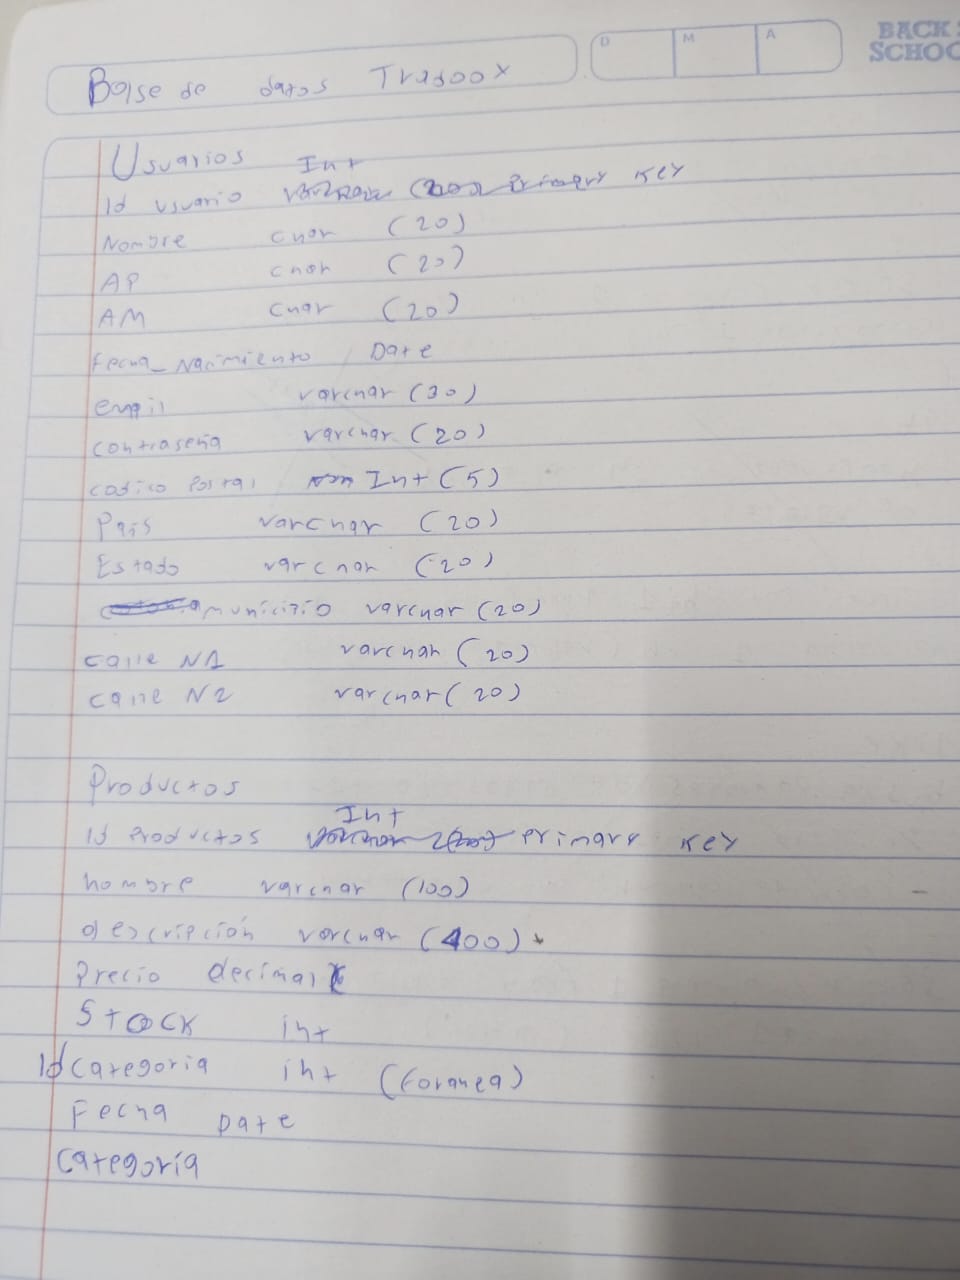 BACK
SCHOO
D M A
Base de datos Tradoox
Usuarios
Int
Id usuario Primary Key
Nombre char (20)
AP char (20)
AM char (20)
fecha_Nacimiento Date
email varchar (30)
contraseña varchar (20)
codico Postal Int (5)
Pais varchar (20)
Estado varchar (20)
municipio varchar (20)
calle N1 varchar (20)
calle N2 varchar (20)
Productos
Int
Id Productos Primary Key
nombre varchar (100)
descripción varchar (400)
Precio decimal
Stock int
Id categoria int (foranea)
Fecha Date
Categoría